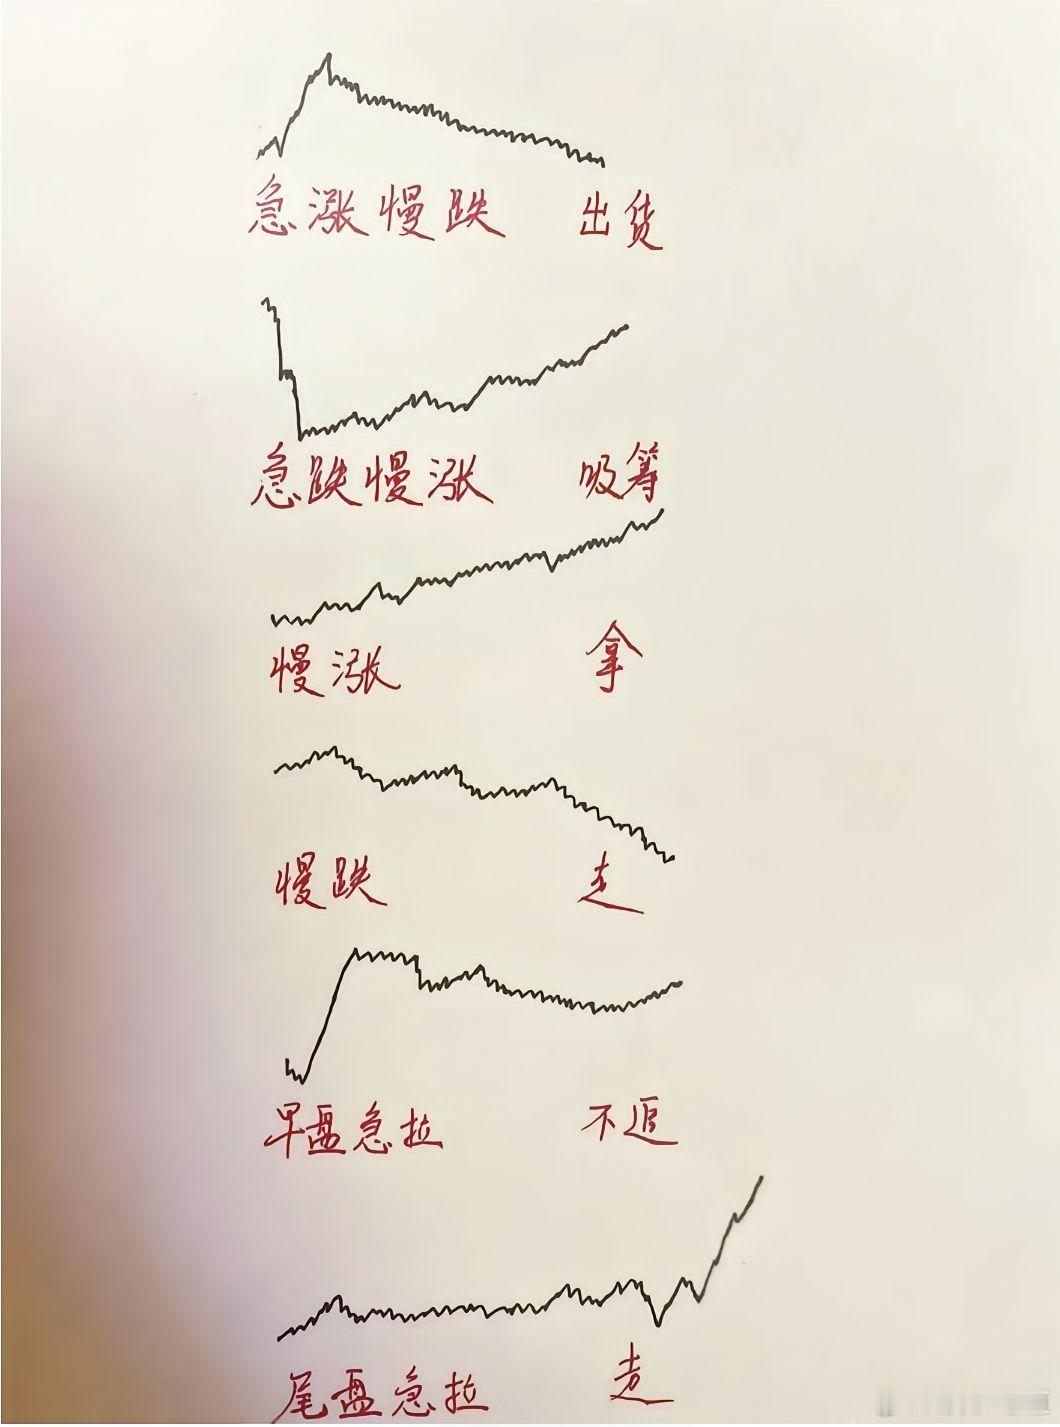 急涨慢跌 出货
急跌慢涨 吸筹
慢涨 拿
慢跌 走
早盘急拉 不追
尾盘急拉 走